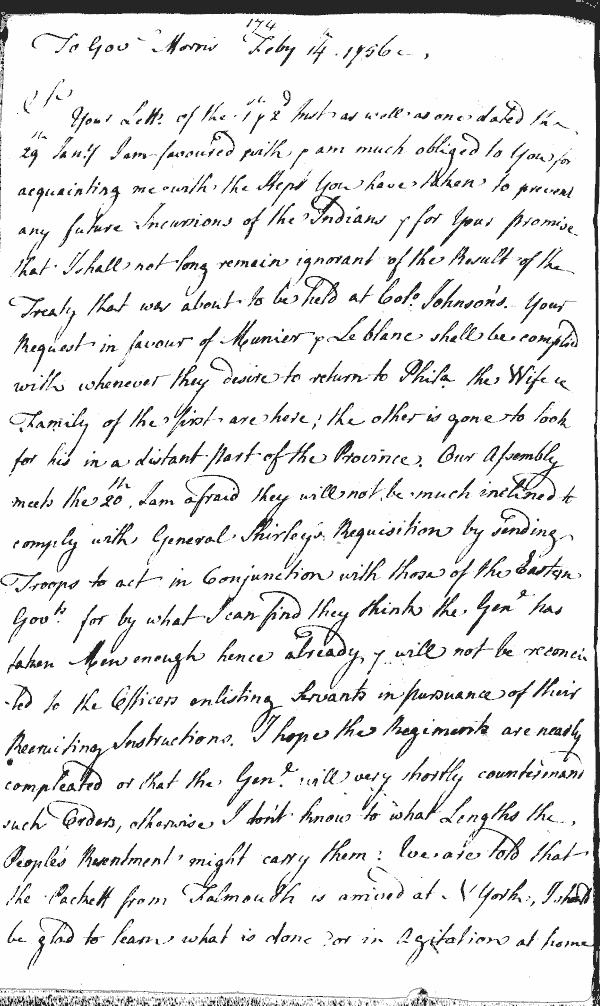 174
To Gov.r Morris Feb.y 14.th 1756.
S.r
Your Lett.rs of the 1.st & 2.d Inst as well as one dated the
29.th Jan.ry I am favoured with & am much obliged to You for
acquainting me with the Steps You have taken to prevent
any future Incursions of the Indians & for Your Promise
that I shall not long remain ignorant of the Result of the
Treaty that was about to be held at Col.o Johnson's. Your
Request in favour of Munier & Leblanc shall be complied
with whenever they desire to return to Phila the Wife &
Family of the first are here; the other is gone to look
for his in a distant Part of the Province. Our Assembly
meets the 20.th, I am afraid they will not be much inclined to
comply with General Shirley's Requisition by sending
Troops to act in Conjunction with those of the Eastern
Gov.ts for by what I can find they think the Gen.l has
taken Men enough hence already & will not be reconci
-led to the Officers enlisting Servants in pursuance of their
Recruiting Instructions. I hope the Regiments are nearly
compleated or that the Gen.l will very shortly countermand
such Orders, otherwise I don't know to what Lengths the
People's Resentment might carry them: We are told that
the Packett from Falmouth is arrived at N York, I should
be glad to learn what is done or in Agitation at home